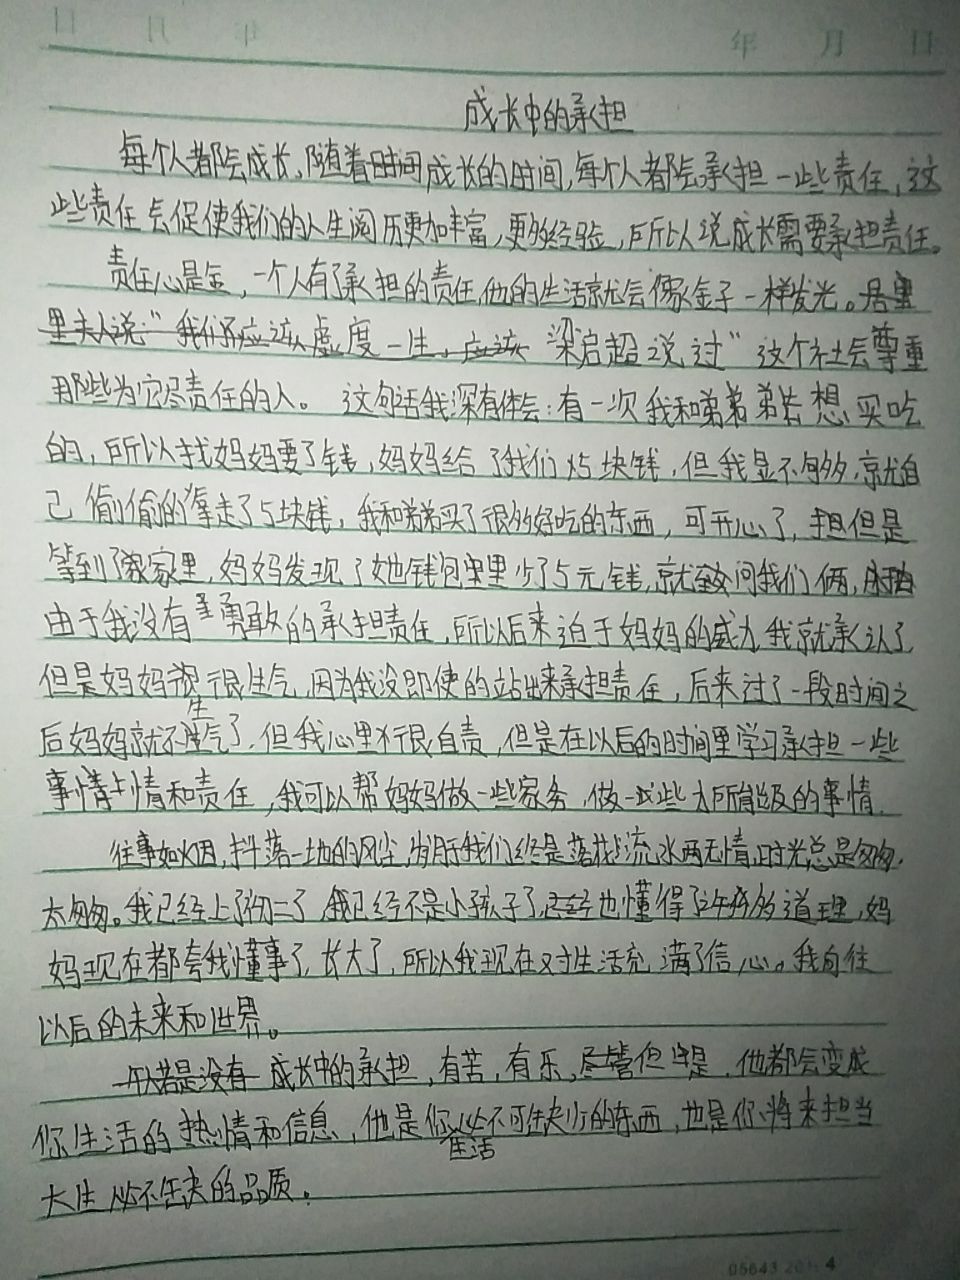 年 月 日
成长中的承担
每个人都会成长,随着成长的时间,每个人都会承担一些责任,这
些责任会促使我们的人生阅历更加丰富,更多经验,所以说成长需要承担责任。
责任心是金,一个人有了承担的责任,他的生活就会像金子一样发光。
梁启超说过"这个社会尊重
那些为它尽责任的人。这句话我深有体会:有一次我和弟弟想买吃
的,所以找妈妈要了钱,妈妈给了我们5块钱,但我显不够多,就自
己偷偷的拿走了5块钱,我和弟弟买了很多好吃的东西,可开心了,但是
等到了家里,妈妈发现了她钱包里少了5元钱,就问我们俩,
由于我没有勇敢的承担责任,所以后来迫于妈妈的威力,我就承认了
但是妈妈很生气,因为我没即使的站出来承担责任,后来过了一段时间之
后妈妈就不生气了,但我心里很自责,但是在以后的时间里学习承担一些
事情和责任,我可以帮妈妈做一些家务,做一些力所能及的事情.
往事如烟,抖落一地的风尘,岁月于我们终是落花流水两无情,时光总是匆匆,
太匆匆。我已经上了初二了,我已经不是小孩子了,也懂得了许多道理,妈
妈现在都夸我懂事了,长大了,所以我现在对生活充满了信心。我向往
以后的未来和世界。
成长中的承担,有苦,有乐,但是,他都会变成
你生活的热情和信息,他是你生活必不可缺少的东西,也是你将来担当
大生必不缺的品质.
05643 4